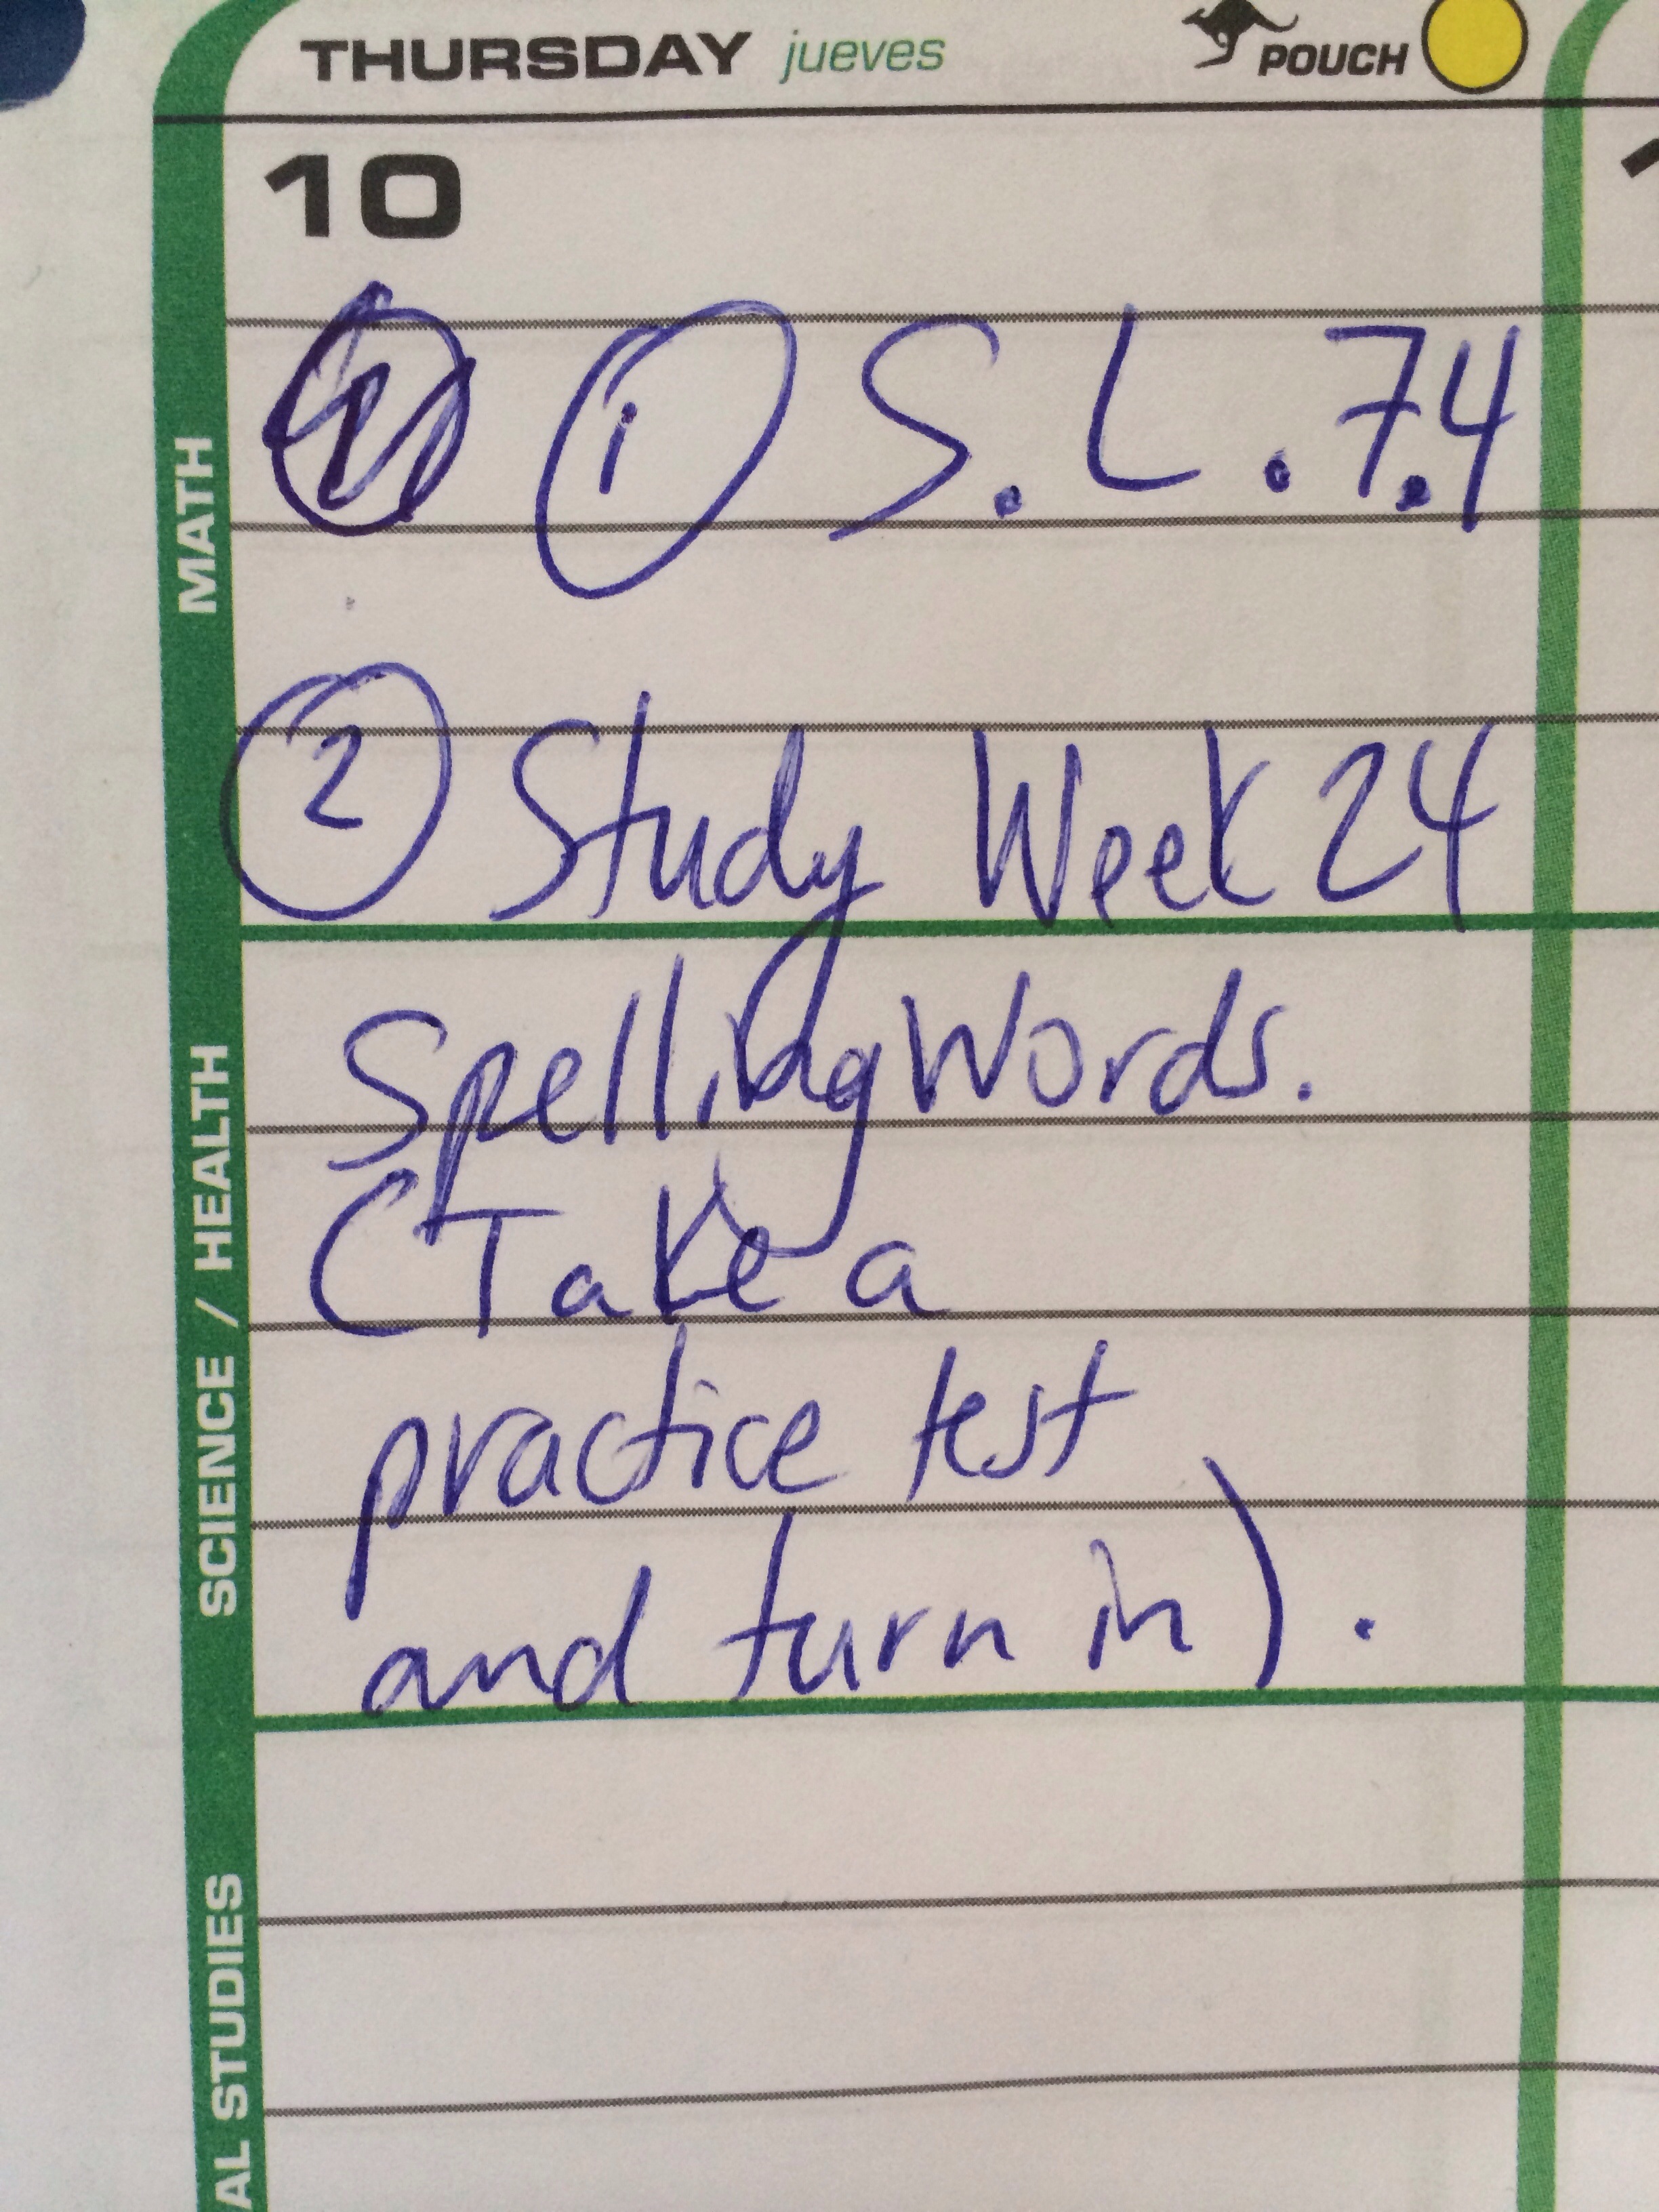 THURSDAY jueves POUCH
10
MATH
① S.L.7.4
② Study Week 24
SCIENCE / HEALTH
Spelling Words.
(Take a
practice test
and turn in).
AL STUDIES